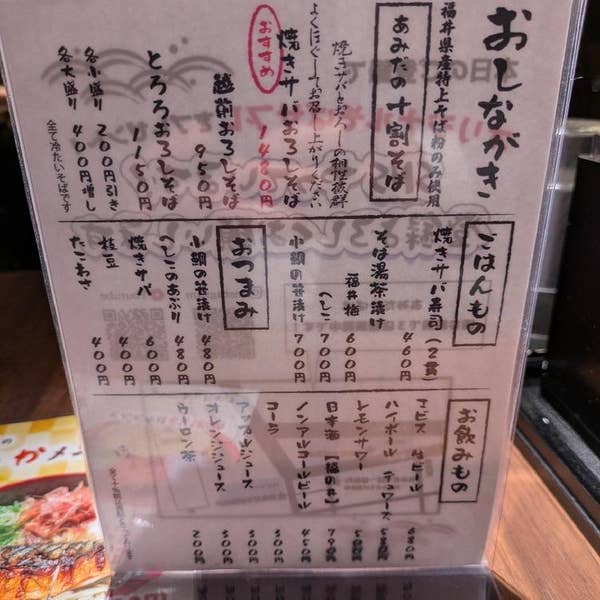 おしながき
福井県産特上そば粉のみ使用
あみだの十割そば
焼きサバとおろしの相性抜群
よくほぐしてお召し上がりください
おすすめ
焼きサバおろしそば 1480円
越前おろしそば 950円
とろろおろしそば 1150円
各小盛り 200円引き
各大盛り 400円増し
全て冷たいそばです
ごはんもの
焼きサバ寿司(2貫) 460円
そば湯茶漬け
福井梅 600円
へしこ 700円
小鯛の笹漬け 700円
おつまみ
小鯛の笹漬け 480円
へしこのあぶり 480円
焼きサバ 600円
枝豆 400円
たこわさ 400円
お飲みもの
ヱビス 生ビール 680円
ハイボール デュワーズ
レモンサワー
日本酒
ノンアルコールビール 450円
コーラ 500円
アップルジュース 500円
オレンジジュース 500円
ウーロン茶 200円